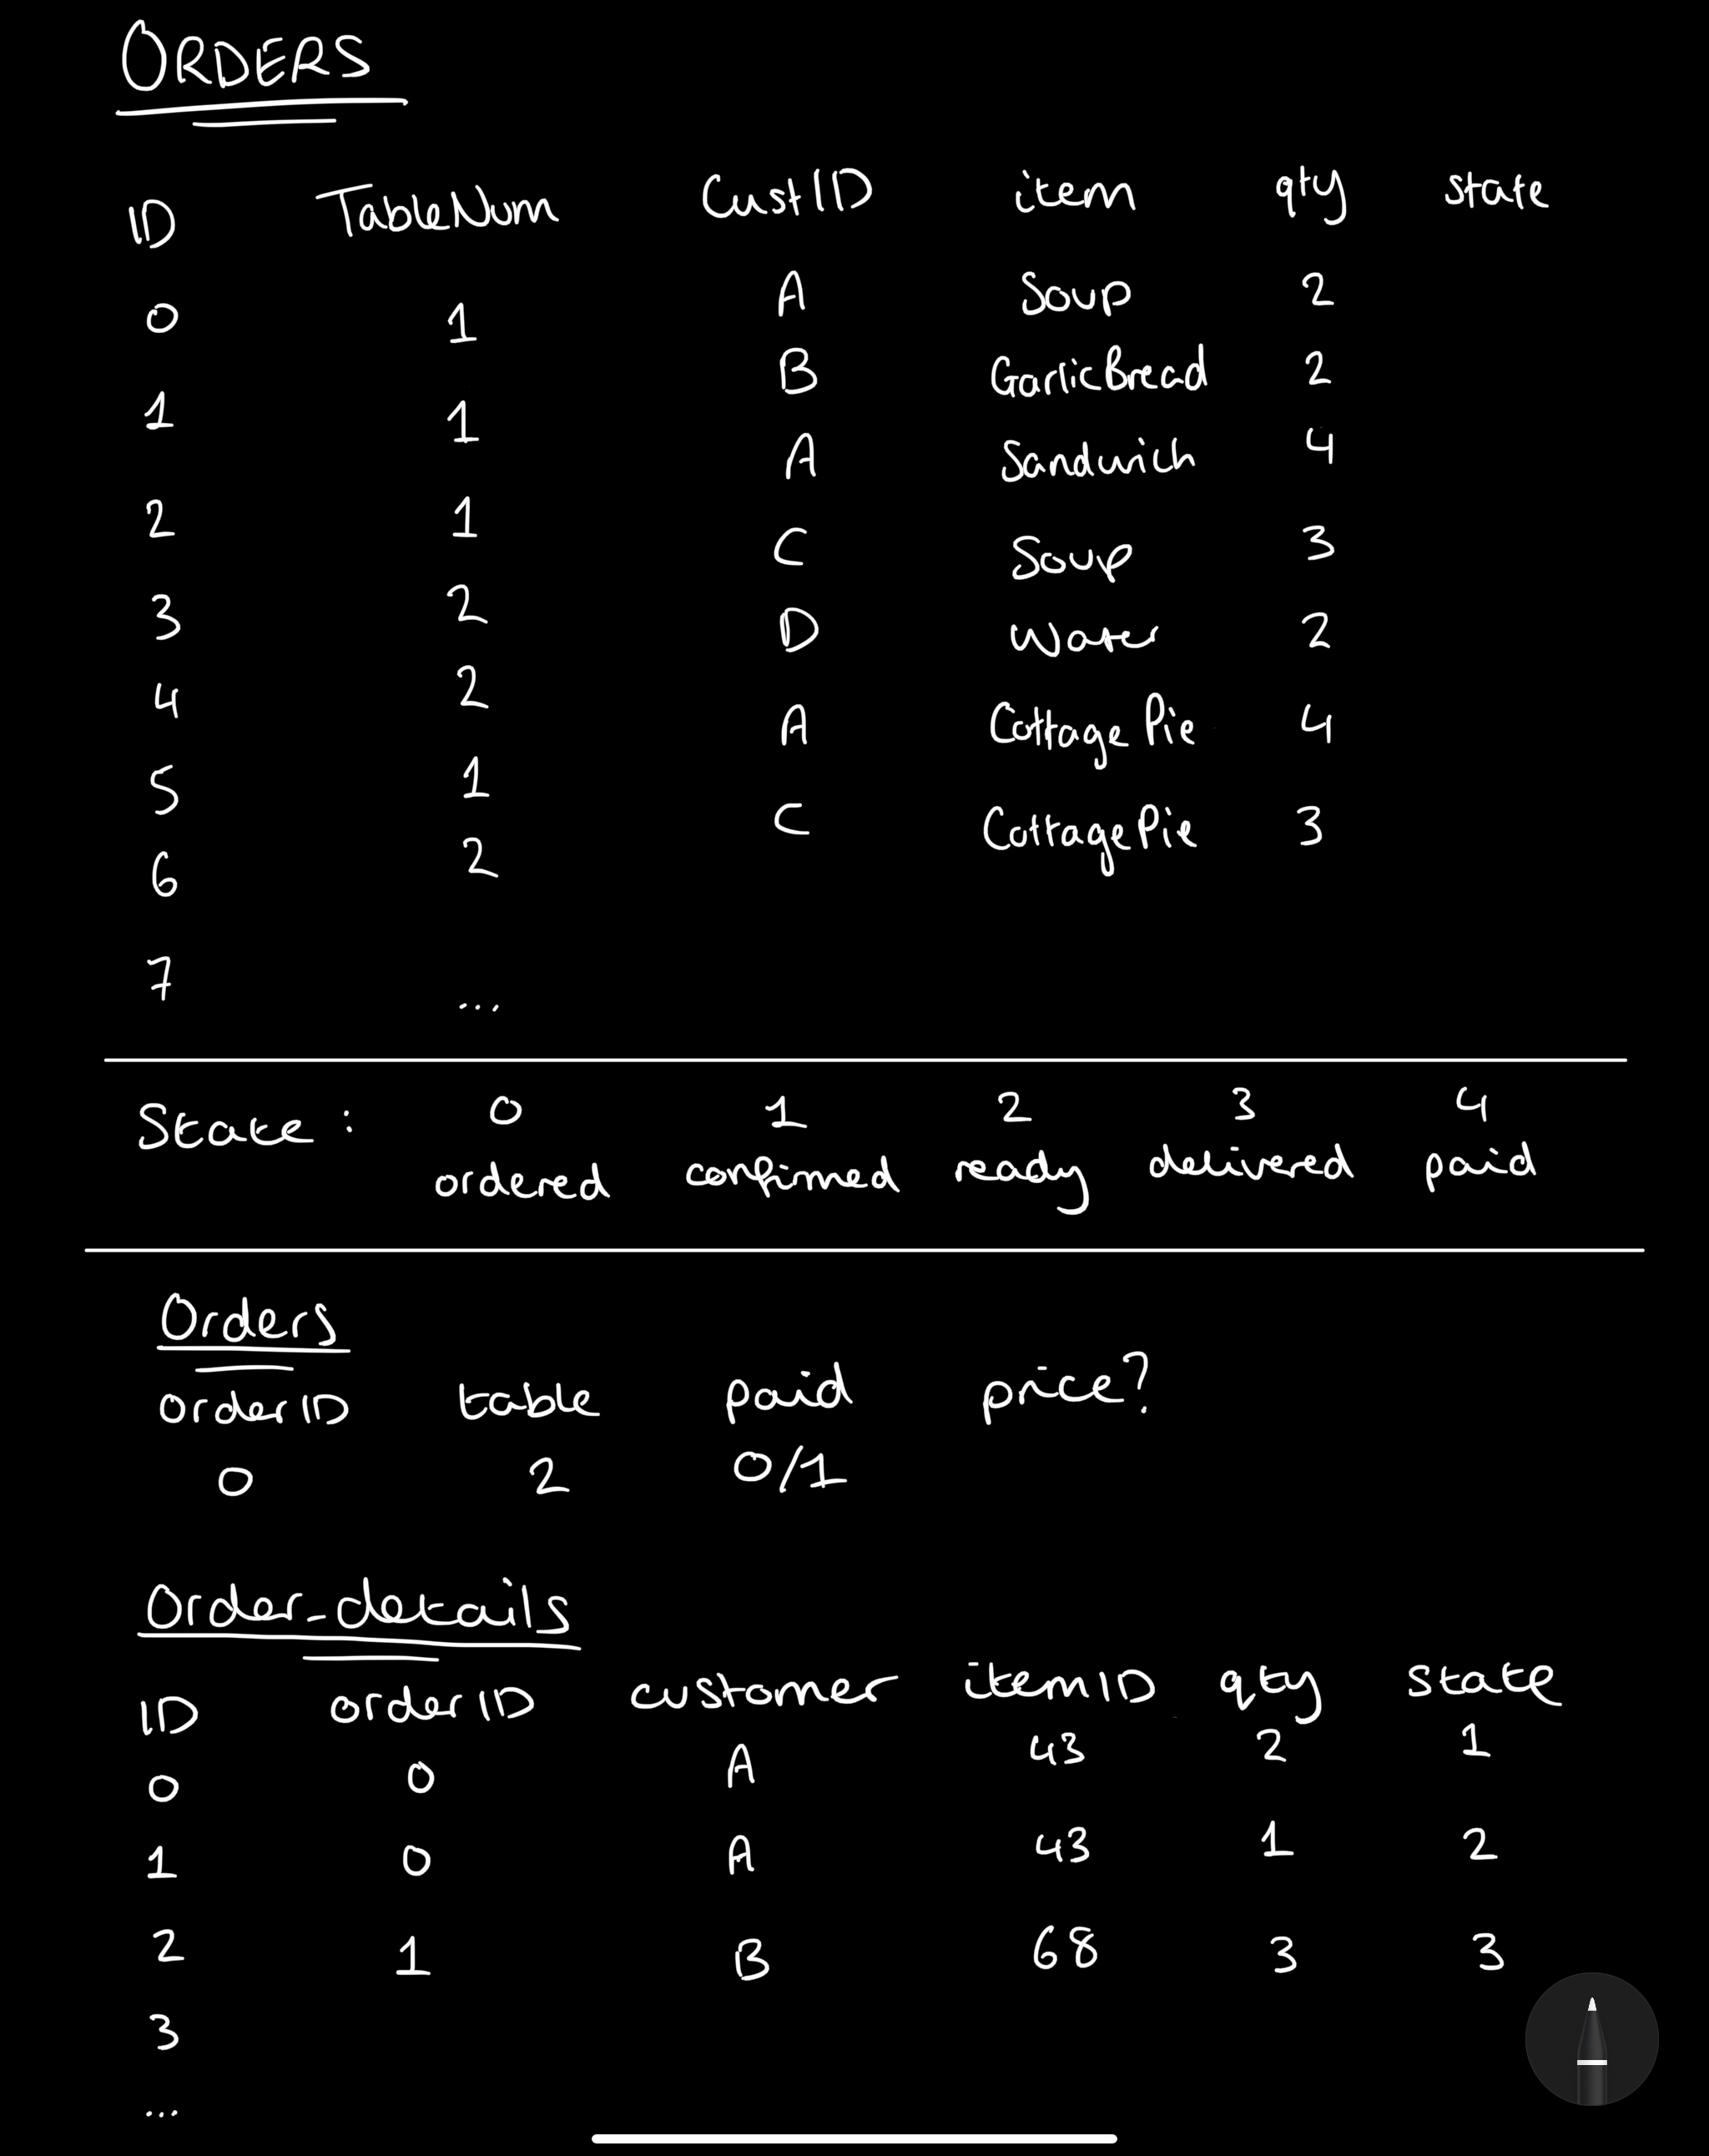 ORDERS
ID TableNum CustID item qty state
0 1 A Soup 2
1 1 B GarlicBread 2
2 1 A Sandwich 4
3 2 C Soup 3
4 2 D Water 2
5 1 A Cottage Pie 4
6 2 C Cottage Pie 3
7 ...
State : 0 1 2 3 4
ordered confirmed ready delivered paid
Orders
orderID table paid price?
0 2 0/1
Order_details
ID orderID customer itemID qty state
0 0 A 43 2 1
1 0 A 43 1 2
2 1 B 68 3 3
3
...